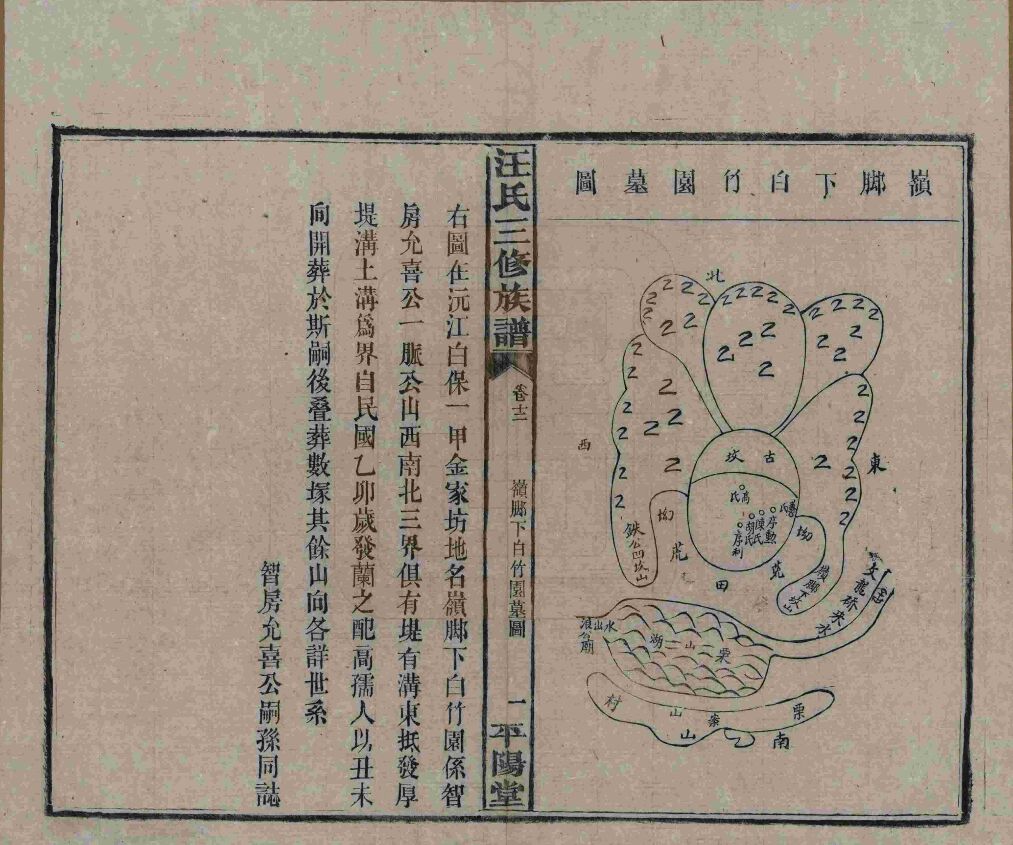 嶺脚下白竹園墓圖
北
東
西
南
古坟
高氏
陳氏
胡氏
序勳
序利
坳
坳
荒
田
荒
鉄公凹坎山
嶺脚下坎山
文龍桥來水
水山浪公廟
栗山湖
栗
山
村
山
汪氏三修族譜
卷十二
嶺脚下白竹園墓圖
一
平陽堂
右圖在沅江白保一甲金家坊地名嶺脚下白竹園係智
房允喜公一脈公山西南北三界俱有堤有溝東抵發厚
堤溝土溝爲界自民國乙卯歲發蘭之配高孺人以丑未
向開葬於斯嗣後叠葬數塚其餘山向各詳世系
智房允喜公嗣孫同誌